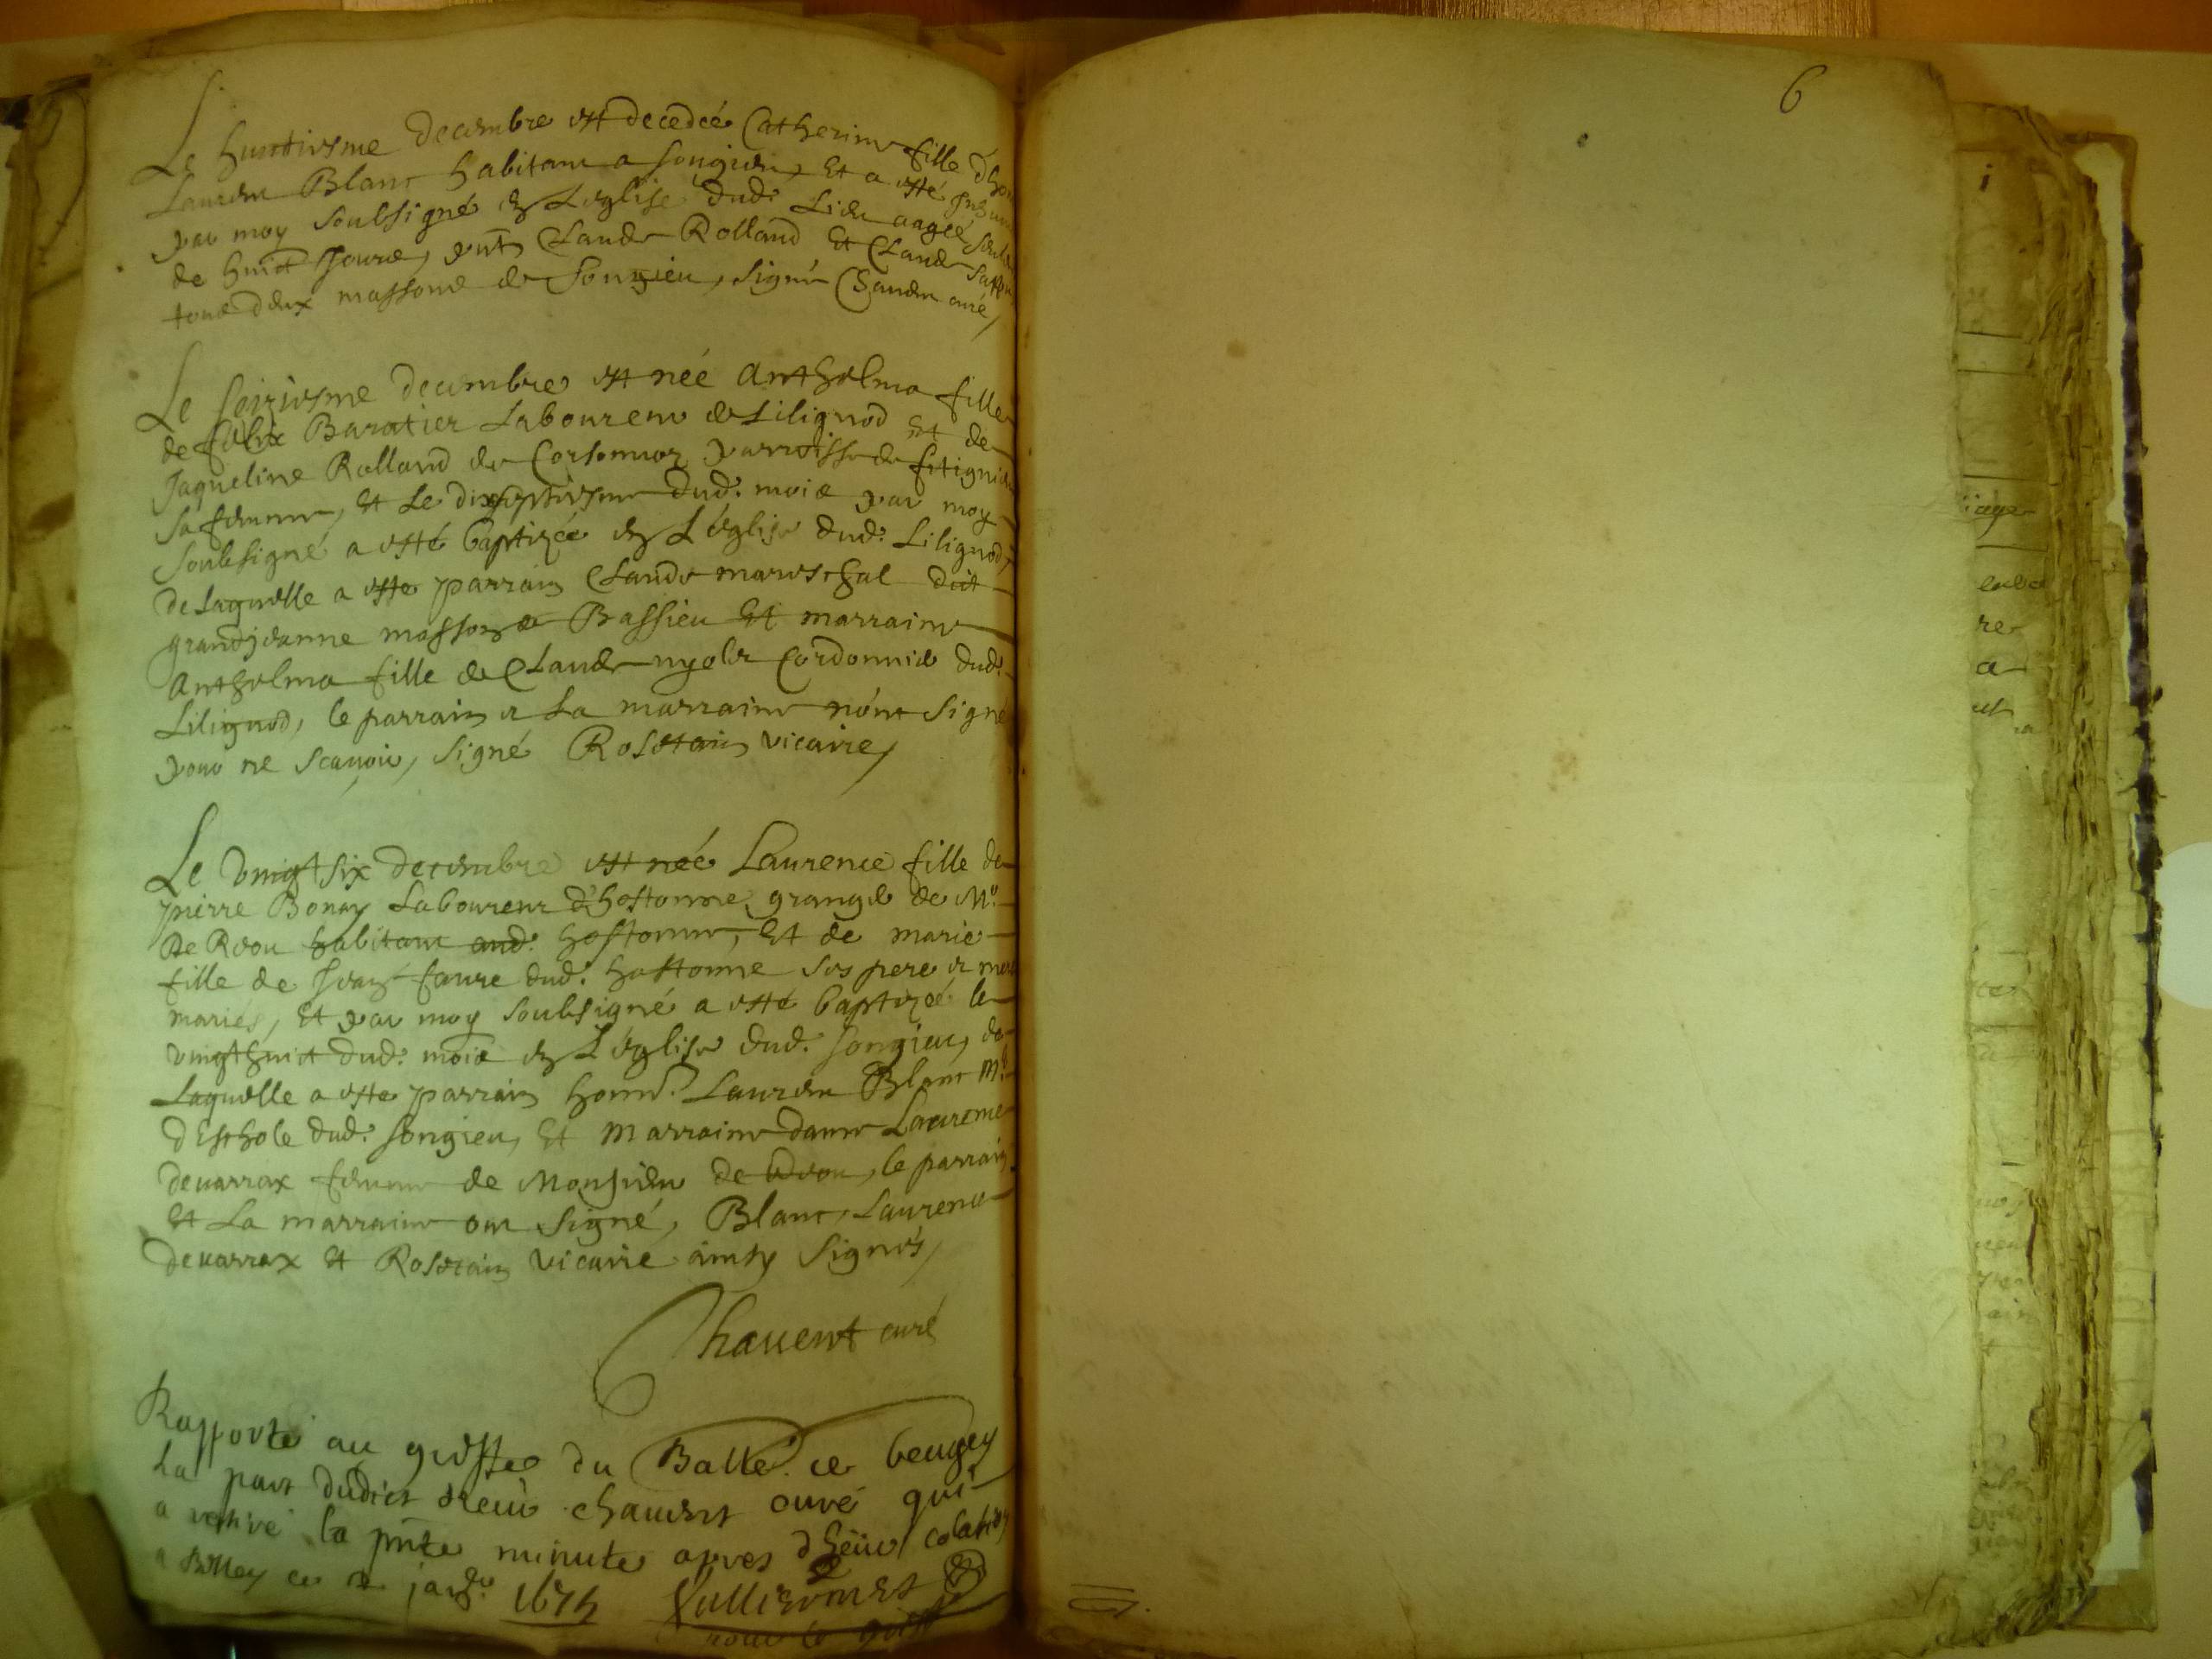 Le huictiesme decembre est decedée Catherine fille d'ho
Lauren Blanc habitant a songieu, et a esté
par moy soubsigné en L'eglise dud. Lieu aagée
de huict jours, pnts Claude Rolland et Claude
tous deux massons de Songieu, signé Chauen curé,
Le seiziesme decembre est née Anthelma fille
de felix Baratier Laboureur de Lilignod et de
Jaqueline Rolland de Corsonnoz parroisse de fitignieu
sa femme, et Le dixseptiesme dud. mois par moy
soubsigné a esté baptizée en L'église dud. Lilignod,
de Laquelle a este parrain Claude mareschal dit
grandjeanne masson de Bassieu et marraine
Anthelma fille de Claude nyolet Cordonnie dud.
Lilignod, le parrain et La marraine n'ont signé
pour ne scauoir, signé Rosetain vicaire,
Le vingt six decembre est née Laurence fille de
pierre Bonay Laboureur d'hostonne, granger de Mr.
De Rdou habitant aud. hostonne, et de marie
fille de Jean faure dud. hostonne ses pere et mere
mariés, et par moy soubsigné a esté baptizée le
vingthuict dud. mois en L'église dud. songieu, de
Laquelle a este parrain honn. Lauren Blanc M.
d'Eschole dud. songieu, et marraine dame Laurence
deuarrax femme de Monsieur de , le parrain
et La marraine ont signé, Blanc, Laurence
deuarrax et Rosetain vicaire ainsy signés,
Chauent curé
Rapporté au greffe du Balle. de beugey
La part dudict sieur chauent curé qui
a retiré la pnte minute apres d'heüe colation
a Belley ce 2 janv. 167
pour le greff
6